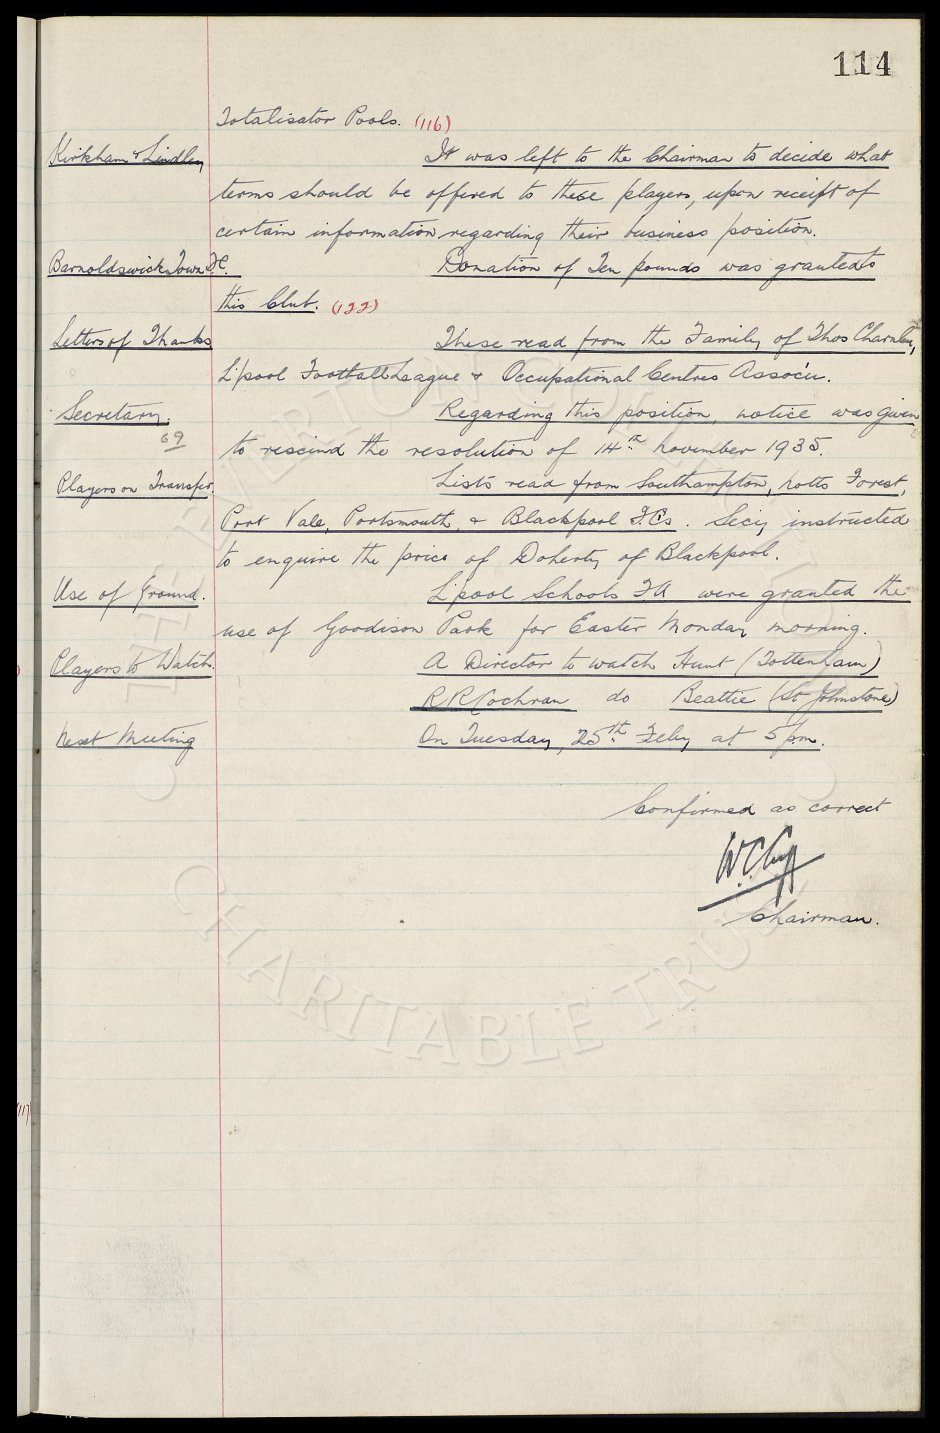 114
Totalisator Pools. (116)
Kirkham & Lindley It was left to the Chairman to decide what
terms should be offered to these players, upon receipt of
certain information regarding their business position.
Barnoldswick Town F.C. Donation of Ten pounds was granted to
this Club. (122)
Letters of Thanks These read from the Family of Thos Charnley,
L'pool Football League & Occupational Centres Assoc'n.
Secretary. Regarding this position, notice was given
69 to rescind the resolution of 14th November 1935.
Players on Transfer. Lists read from Southampton, Notts Forest,
Port Vale, Portsmouth, & Blackpool F.Cs. Secy instructed
to enquire the price of Doherty of Blackpool.
Use of Ground. L'pool Schools FA were granted the
use of Goodison Park for Easter Monday morning.
Players to Watch. A Director to watch Hunt (Tottenham)
R R Cochran do Beattie (St Johnstone)
Next Meeting On Tuesday, 25th Feby at 5 p.m.
Confirmed as correct
W.C. Cuff
Chairman.
(117)
THE EVERTON COLLECTION
CHARITABLE TRUST